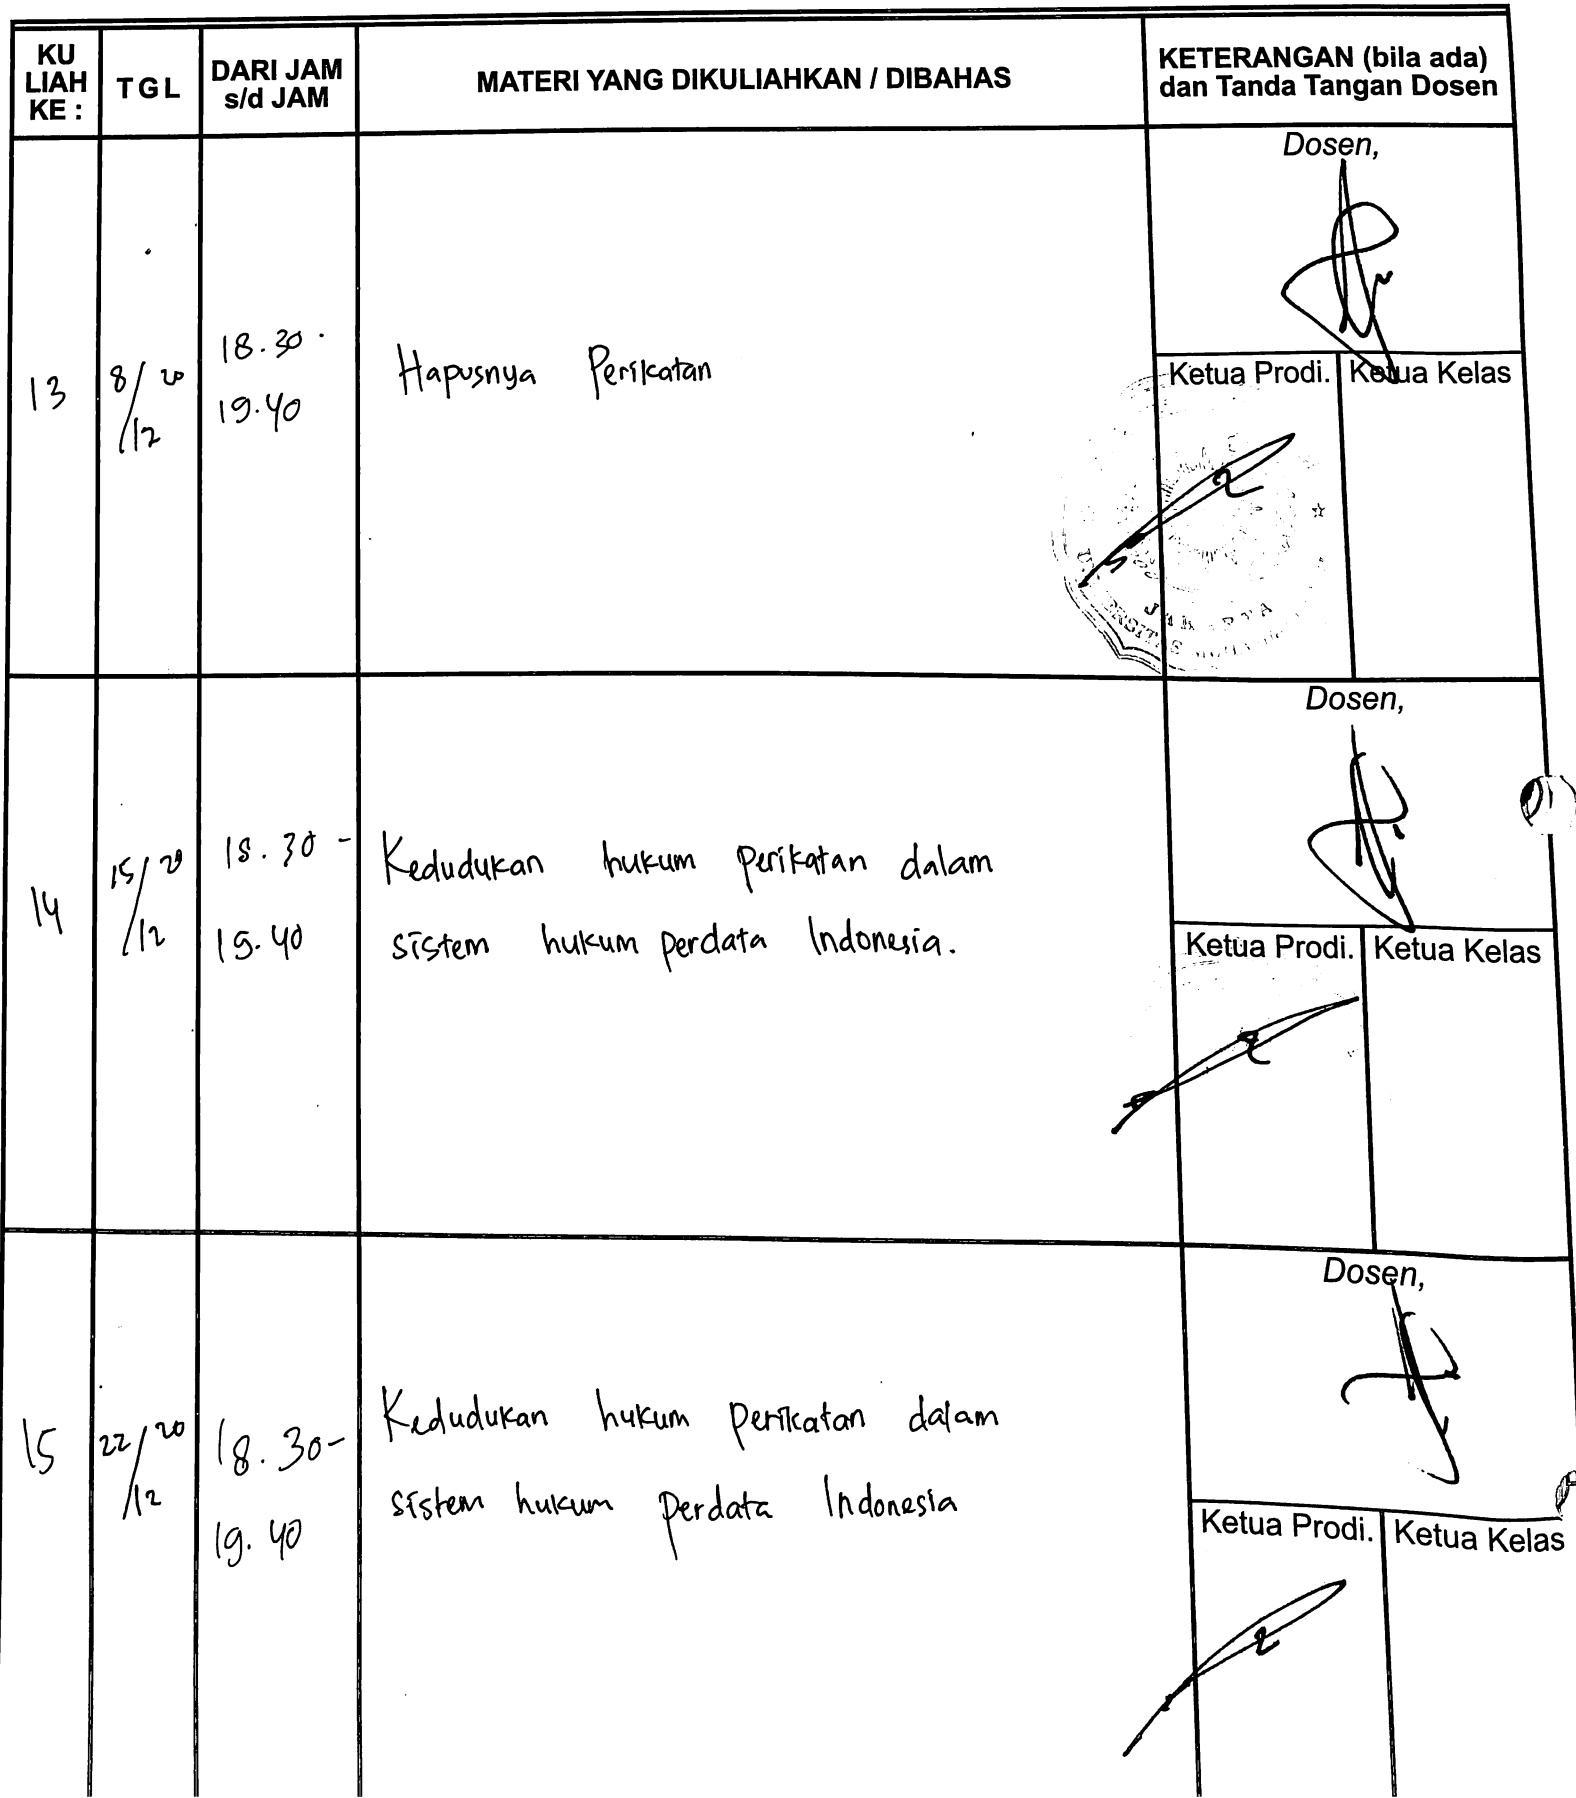 KU LIAH KE :
TGL
DARI JAM s/d JAM
MATERI YANG DIKULIAHKAN / DIBAHAS
KETERANGAN (bila ada) dan Tanda Tangan Dosen
13
8/12 20
18.30 -
19.40
Hapusnya Perikatan
Dosen,
Ketua Prodi.
Ketua Kelas
JAKARTA
14
15/12 20
18.30 -
19.40
Kedudukan hukum perikatan dalam
sistem hukum perdata Indonesia.
Dosen,
Ketua Prodi.
Ketua Kelas
15
22/12 20
18.30-
19.40
Kedudukan hukum perikatan dalam
sistem hukum perdata Indonesia
Dosen,
Ketua Prodi.
Ketua Kelas